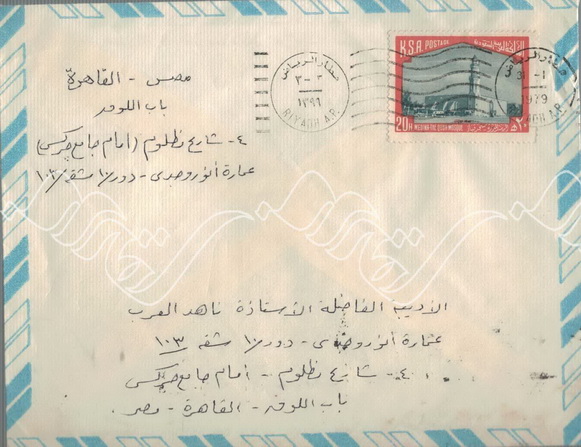 مصر - القاهرة
باب اللوق
٤ - شارع مظلوم (أمام جامع جركس)
عمارة أنور وجدى - دور ١٠ شقة ١٠٣
K.S.A. POSTAGE
20H MEDINA
MOSQUE
مطار الرياض
١٣٩٩
RIYADH A.P.
1979
الأديب الفاضلة الأستاذة ناهد العرب
عمارة أنور وجدى - دور ١٠ شقة ١٠٣
٤ - شارع مظلوم - أمام جامع جركس
باب اللوق - القاهرة - مصر.